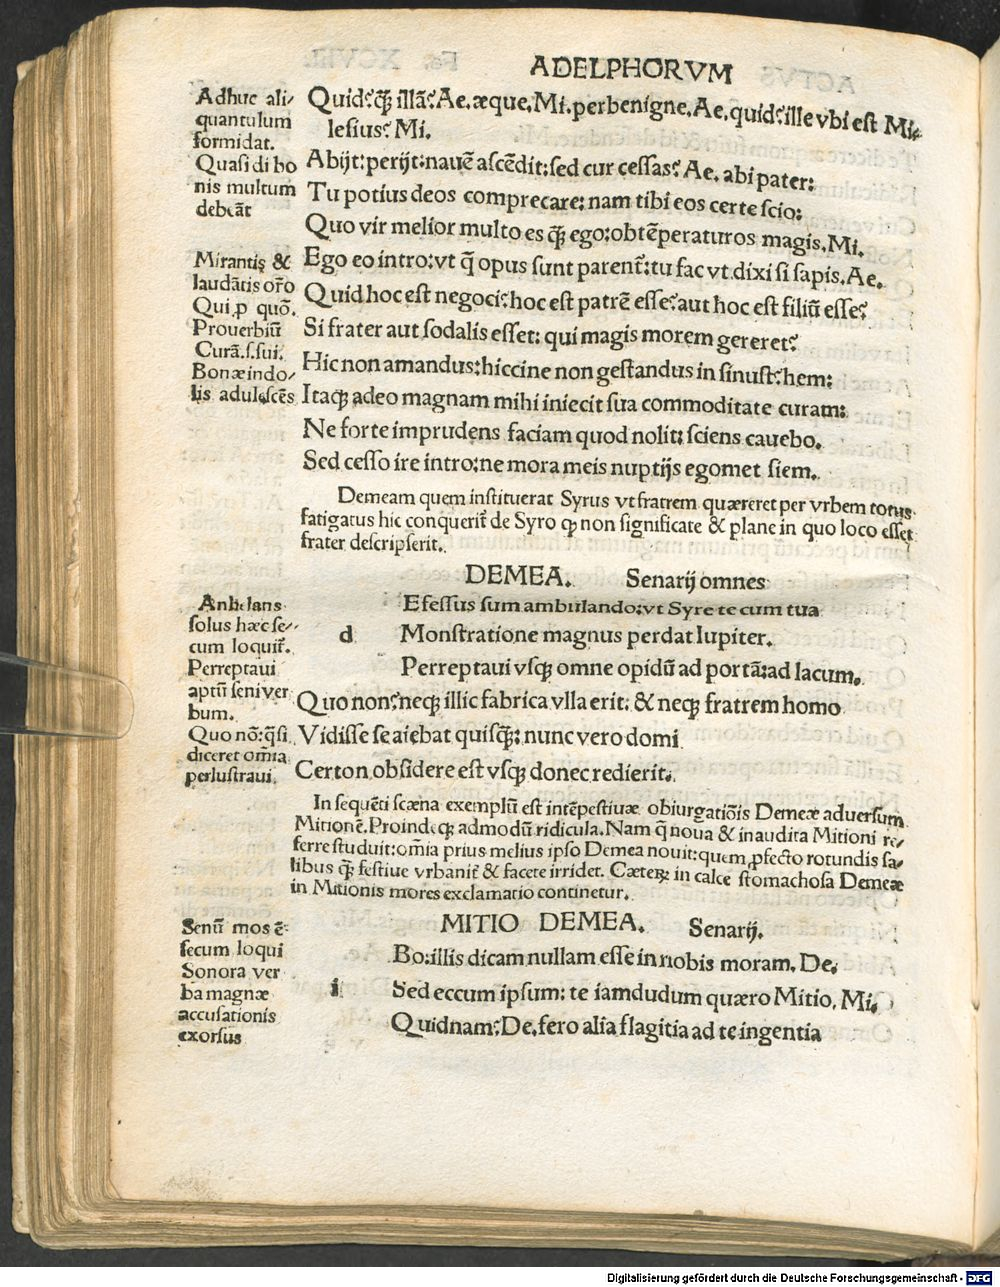 ADELPHORVM
Adhuc ali/
quantulum
formidat.
Quasi di bo
nis multum
debeāt
Mirantis &
laudātis orō
Qui ꝓ quō.
Prouerbiū
Curā.s.sui.
Bonæ indo/
lis adulescēs
Quid? ꝙ̄ illā? Ae. æque. Mi. perbenigne. Ae. quid? ille vbi est Mi/
lesius? Mi.
Abijt: perijt: nauē ascēdit: sed cur cessas? Ae. abi pater:
Tu potius deos comprecare: nam tibi eos certe scio:
Quo vir melior multo es ꝙ̄ ego: obtēperaturos magis. Mi.
Ego eo intro: vt q̄ opus sunt parent̄: tu fac vt dixi si sapis. Ae.
Quid hoc est negoci? hoc est patrē esse? aut hoc est filiū esse?
Si frater aut sodalis esset: qui magis morem gereret?
Hic non amandus: hiccine non gestandus in sinust? hem:
Itaqꝫ adeo magnam mihi iniecit sua commoditate curam:
Ne forte imprudens faciam quod nolit: sciens cauebo.
Sed cesso ire intro: ne mora meis nuptijs egomet siem.
Demeam quem instituerat Syrus vt fratrem quæreret per vrbem totus
fatigatus hic conquerit̄ de Syro ꝙ non significate & plane in quo loco esset
frater descripserit.
DEMEA. Senarij omnes
Anhelans
solus hæc se/
cum loquit̄.
Perreptaui
aptū seni ver
bum.
Quo nō: q̄si
diceret om̄ia
perlustraui.
d
Efessus sum ambulando: vt Syre te cum tua
Monstratione magnus perdat Iupiter.
Perreptaui vsqꝫ omne opidū ad portā: ad lacum.
Quo non? neqꝫ illic fabrica vlla erit: & neqꝫ fratrem homo
Vidisse se aiebat quisꝙ̄: nunc vero domi
Certon obsidere est vsqꝫ donec redierit.
In sequēti scæna exemplū est intēpestiuæ obiurgatiōis Demeæ aduersum
Mitionē. Proindeqꝫ admodū ridicula. Nam q̄ noua & inaudita Mitioni re/
ferre studuit: om̄ia prius melius ipso Demea nouit: quem ꝓfecto rotundis sa/
libus ꝙ̄ festiue vrbanit̄ & facete irridet. Cæteꝝ in calce stomachosa Demeæ
in Mitionis mores exclamatio continetur.
MITIO DEMEA. Senarij.
Senū mos ē
secum loqui
Sonora ver
ba magnæ
accusationis
exorsus
i
Bo: illis dicam nullam esse in nobis moram. De.
Sed eccum ipsum: te iamdudum quæro Mitio. Mi.
Quidnam? De. fero alia flagitia ad te ingentia
Digitalisierung gefördert durch die Deutsche Forschungsgemeinschaft - DFG